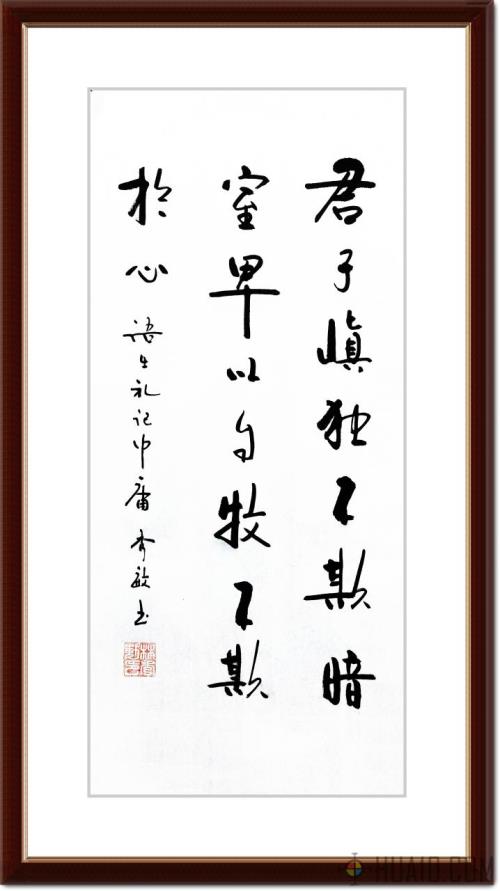 君子慎独不欺暗
室卑以自牧不欺
於心 语出礼记中庸 敏书
HUAID.COM